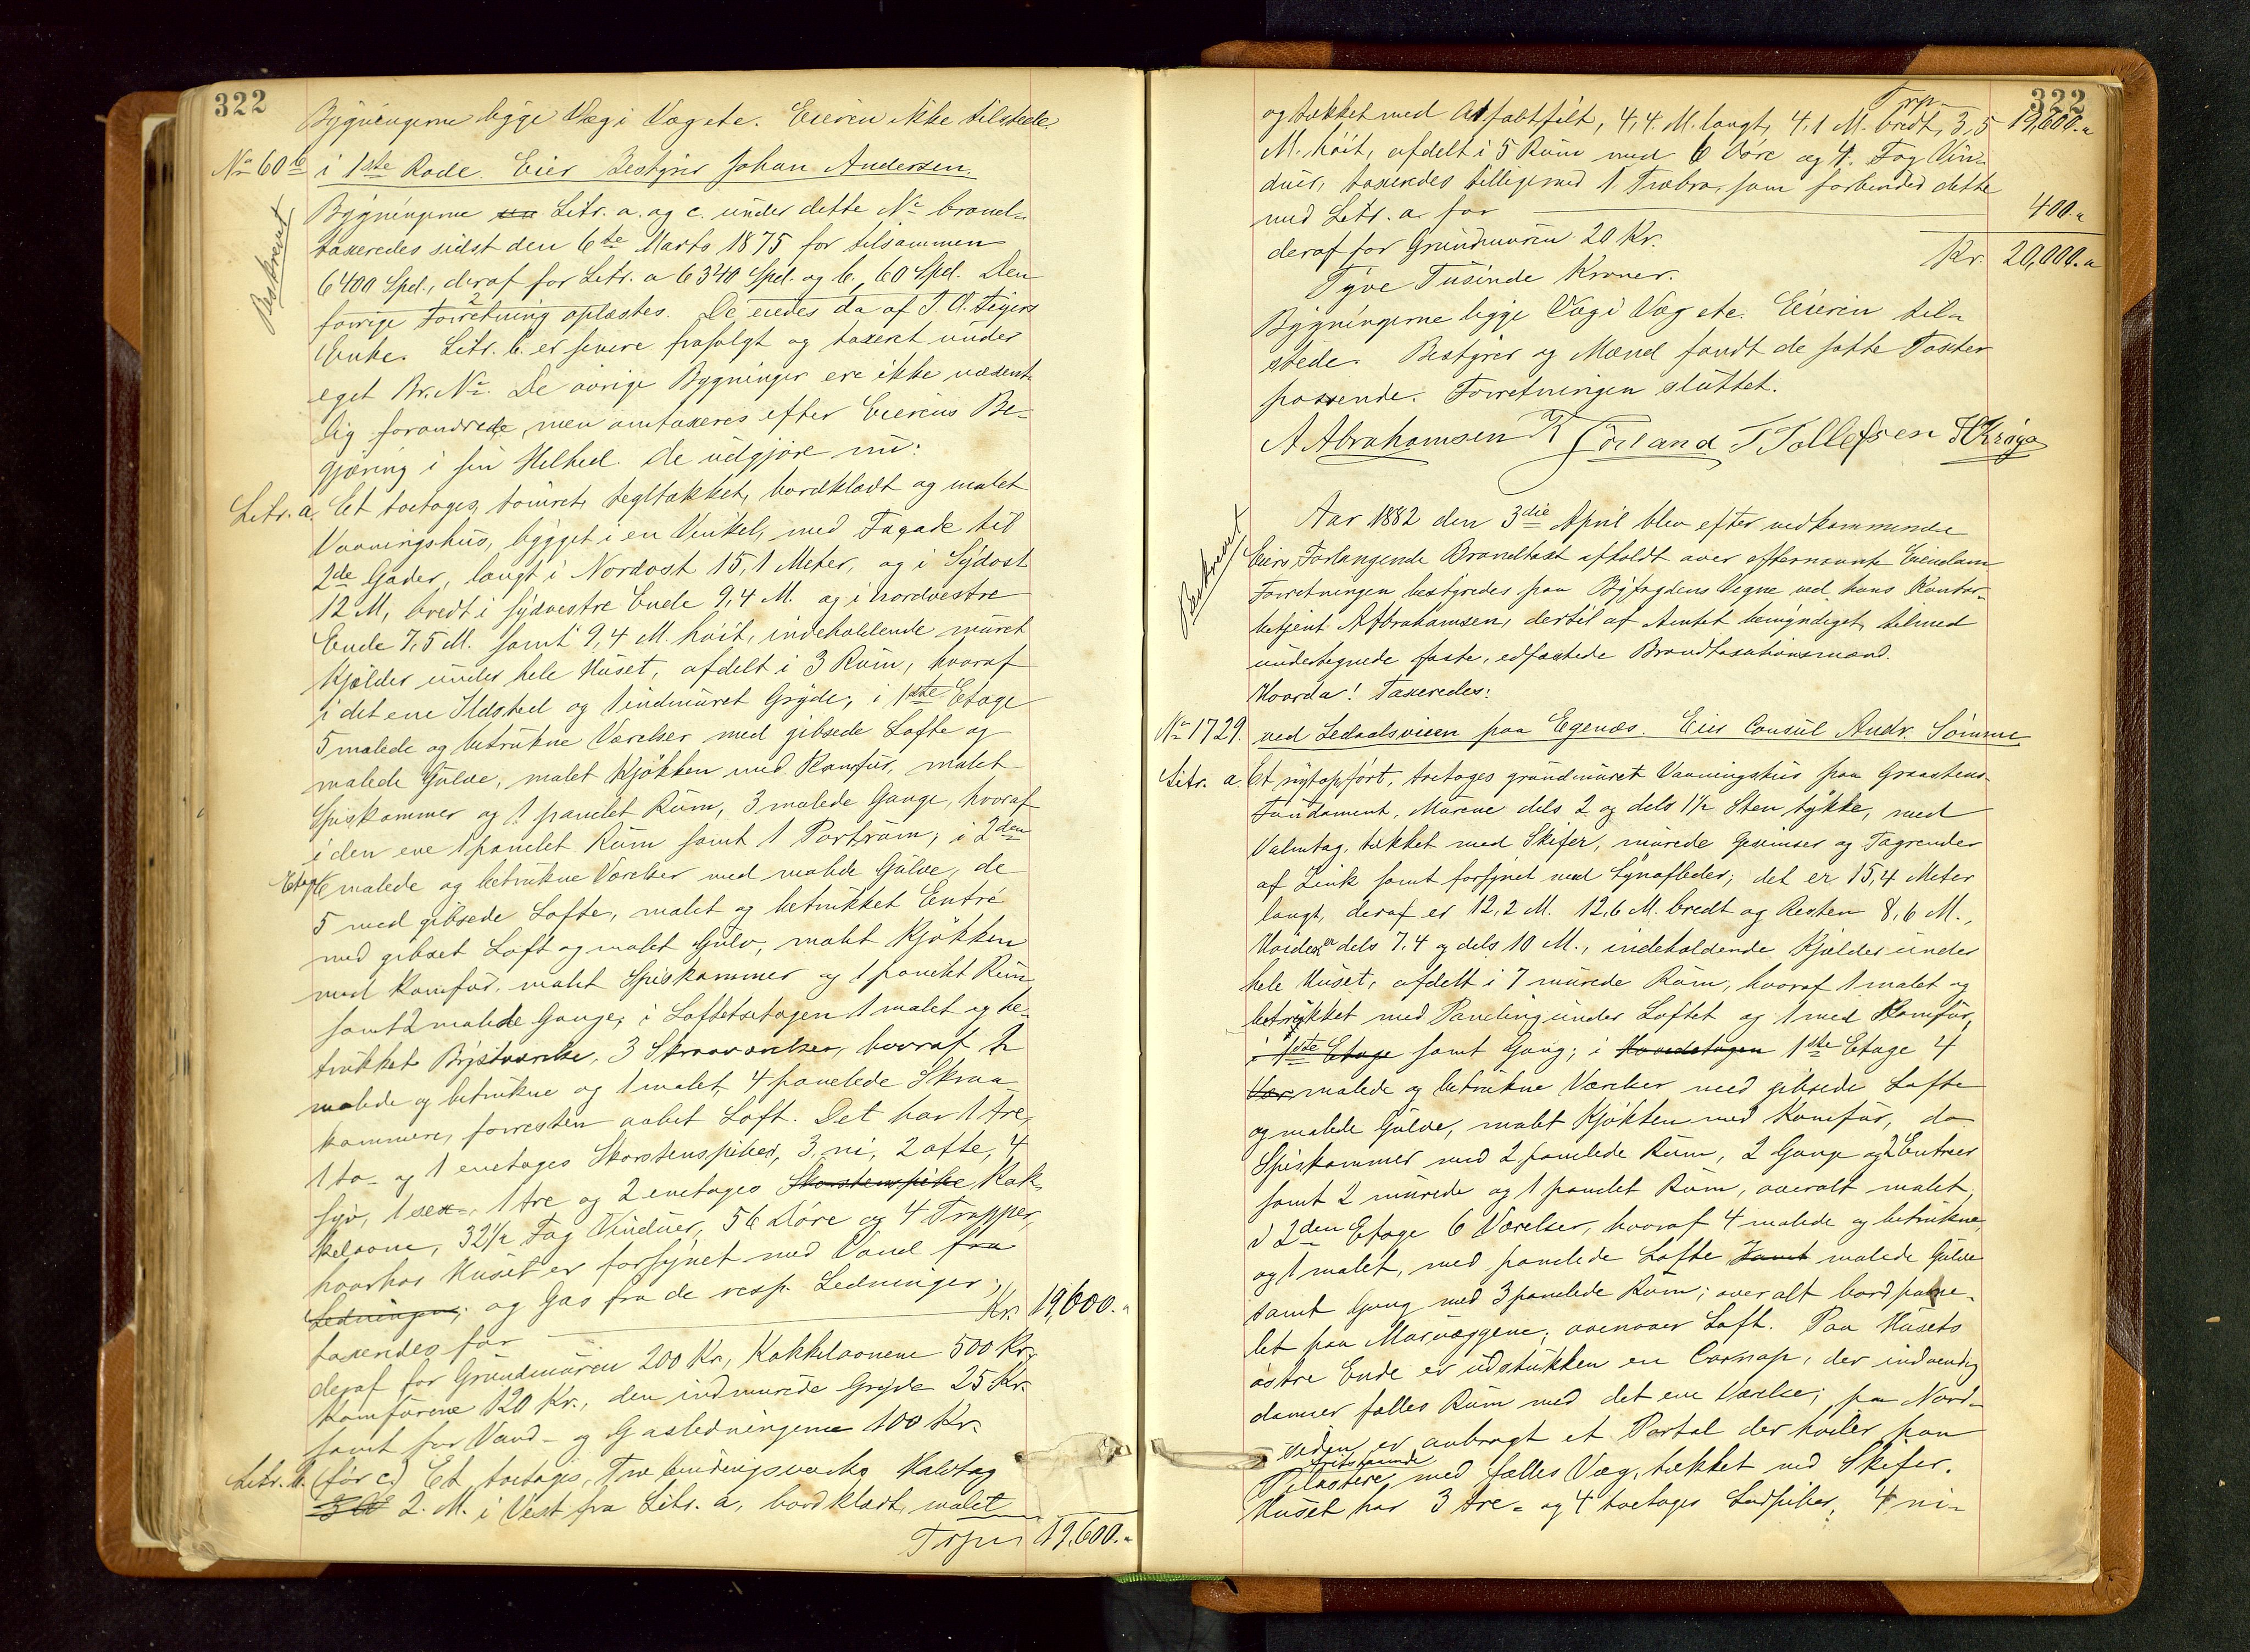 322
Bygningerne ligge Væg i Væg etc. Eieren ikke tilstede.
No 60b i 1ste Rode. Eier Bestyrer Johan Andersen.
Beskrevet
Bygningerne Litr. a. og c. under dette No brand-
taxeredes sidst den 6te Marts 1875 for tilsammen
6400 Spd., deraf for Litr. a 6340 Spd. og b. 60 Spd. Den
forrige Forretning oplæstes. De eiedes da af
Enke. Litr. b. er senere frasolgt og taxeret under
eget Br. No. De øvrige Bygninger ere ikke væsent-
lig forandrede, men omtaxeres efter Eierens Be-
gjæring i sin Helhed. De udgjøre nu:
Litr. a. Et toetages, tømret, tegltækket, bordklædt og malet
Vaaningshus, bygget i en Vinkel, med Façade til
2de Gader, langt i Nordost 15,1 Meter, og i Sydost
12 M, bredt i sydvestre Ende 9,4 M. og i nordvestre
Ende 7,5 M. samt 9,4 M. høit, indeholdende muret
Kjælder under hele Huset, afdelt i 3 Rum, hvoraf
i det ene Ildsted og 1 indmuret Gryde; i 1ste Etage
5 malede og betrukne Værelser med gibsede Lofte og
malede Gulve, malet Kjøkken med Komfur, malet
Spiskammer og 1 panelet Rum, 3 malede Gange, hvoraf
i den ene 1 panelet Rum samt 1 Portrum; i 2den
Etage 6 malede og betrukne Værelser med malede Gulve, de
5 med gibsede Lofte, malet og betrukket Entré
med gibset Loft og malet Gulv, malet Kjøkken
med Komfur, malet Spiskammer og 1 panelet Rum
samt 2 malede Gange; i Loftsetagen 1 malet og be-
trukket Brystværelse, 3 Skraaværelser, hvoraf 2
malede og betrukne og 1 malet, 4 panelede Skraa-
kammere, forresten aabet Loft. Det har 1 tre,
1 to- og 1 enetages Skorstenspiber, 3 ni, 2 otte, 4
syv, 1 sex-, 1 tre og 2 enetages Skorstenspibe Kak-
kelovne, 32½ Fag Vinduer, 56 Døre og 4 Trapper,
hvorhos Huset er forsynet med Vand fra
Ledningen, og Gas fra de resp. Ledninger;
taxeredes for Kr. 19,600.-
deraf for Grundmuren 200 Kr., Kakkelovnene 500 Kr.,
Komfurene 120 Kr., den indmurede Gryde 25 Kr.
samt for Vand- og Gasledningerne 100 Kr.
Litr. b. (før c) Et toetages, Træ bindingsværks Halvtag
2. M. i Vest fra Litr. a, bordklædt, malet
19,600.-
322
Trp. 19,600.-
og tækket med Asfaltfilt, 4,4. M. langt, 4,1 M. bredt, 3,5
M. høit, afdelt i 5 Rum med 6 Døre og 4. Fag Vin-
duer, taxeredes tilligemed 1 Træbro, som forbinder dette
med Litr. a. for 400.-
deraf for Grundmuren 20 Kr.
Kr. 20,000.-
Tyve Tusinde Kroner.
Bygningerne ligge Væg i Væg etc. Eieren til-
stede. Bestyrer og Mænd fandt de satte Taxter
passende. Forretningen sluttet.
A Abrahamsen T Tollefsen
Beskrevet
Aar 1882 den 3die April blev efter vedkommende
Eiers Forlangende Brandtaxt afholdt over efternævnte Eiendom
Forretningen bestyredes paa Byfogdens Vegne ved hans Kontor-
betjent A Abrahamsen, dertil af Amtet bemyndiget, tilmed
undertegnede faste, edfæstede Brandtaxationsmænd.
Hvorda! Taxeredes:
No 1729. ved Ledaalsveien paa Egenæs. Eier Consul Andr. Sømme
Litr. a. Et nyopført, toetages grundmuret Vaaningshus paa Graastens-
Fundament, Murene dels 2 og dels 1½ Sten tykke, med
Valmtag, tækket med Skifer, murede Gesimser og Tagrender
af Zink samt forsynet med Lynafleder; det er 15,4 Meter
langt, deraf er 12,2 M. 12,6 M. bredt og Resten 8,6 M.,
Høiden er dels 7,4 og dels 10 M., indeholdende Kjælder under
hele Huset, afdelt i 7 murede Rum, hvoraf 1 malet og
betrukket med Paneling under Loftet og 1 med Komfur,
i 1ste Etage samt Gang; i Hovedetagen 1ste Etage 4
Vær malede og betrukne Værelser med gibsede Lofte
og malede Gulve, malet Kjøkken med Komfur, do
Spiskammer med 2 panelede Rum, 2 Gange og 2 Entreer
samt 2 murede og 1 panelet Rum, overalt malet,
i 2den Etage 6 Værelser, hvoraf 4 malede og betrukne
og 1 malet, med panelede Lofte samt malede Gulve
samt Gang med 3 panelede Rum; overalt bordpane-
let paa Murvæggene; ovenover Loft. Paa Husets
østre Ende er udstukken en Carnap, der indvendig
danner fælles Rum med det ene Værelse; paa Nord-
siden er anbragt et Portal der hviler paa
fritstaaende
Pilastere, med fælles Væg, tækket med Skifer.
Huset har 3 tre- og 4 toetages Ludpiber, 4 ni-